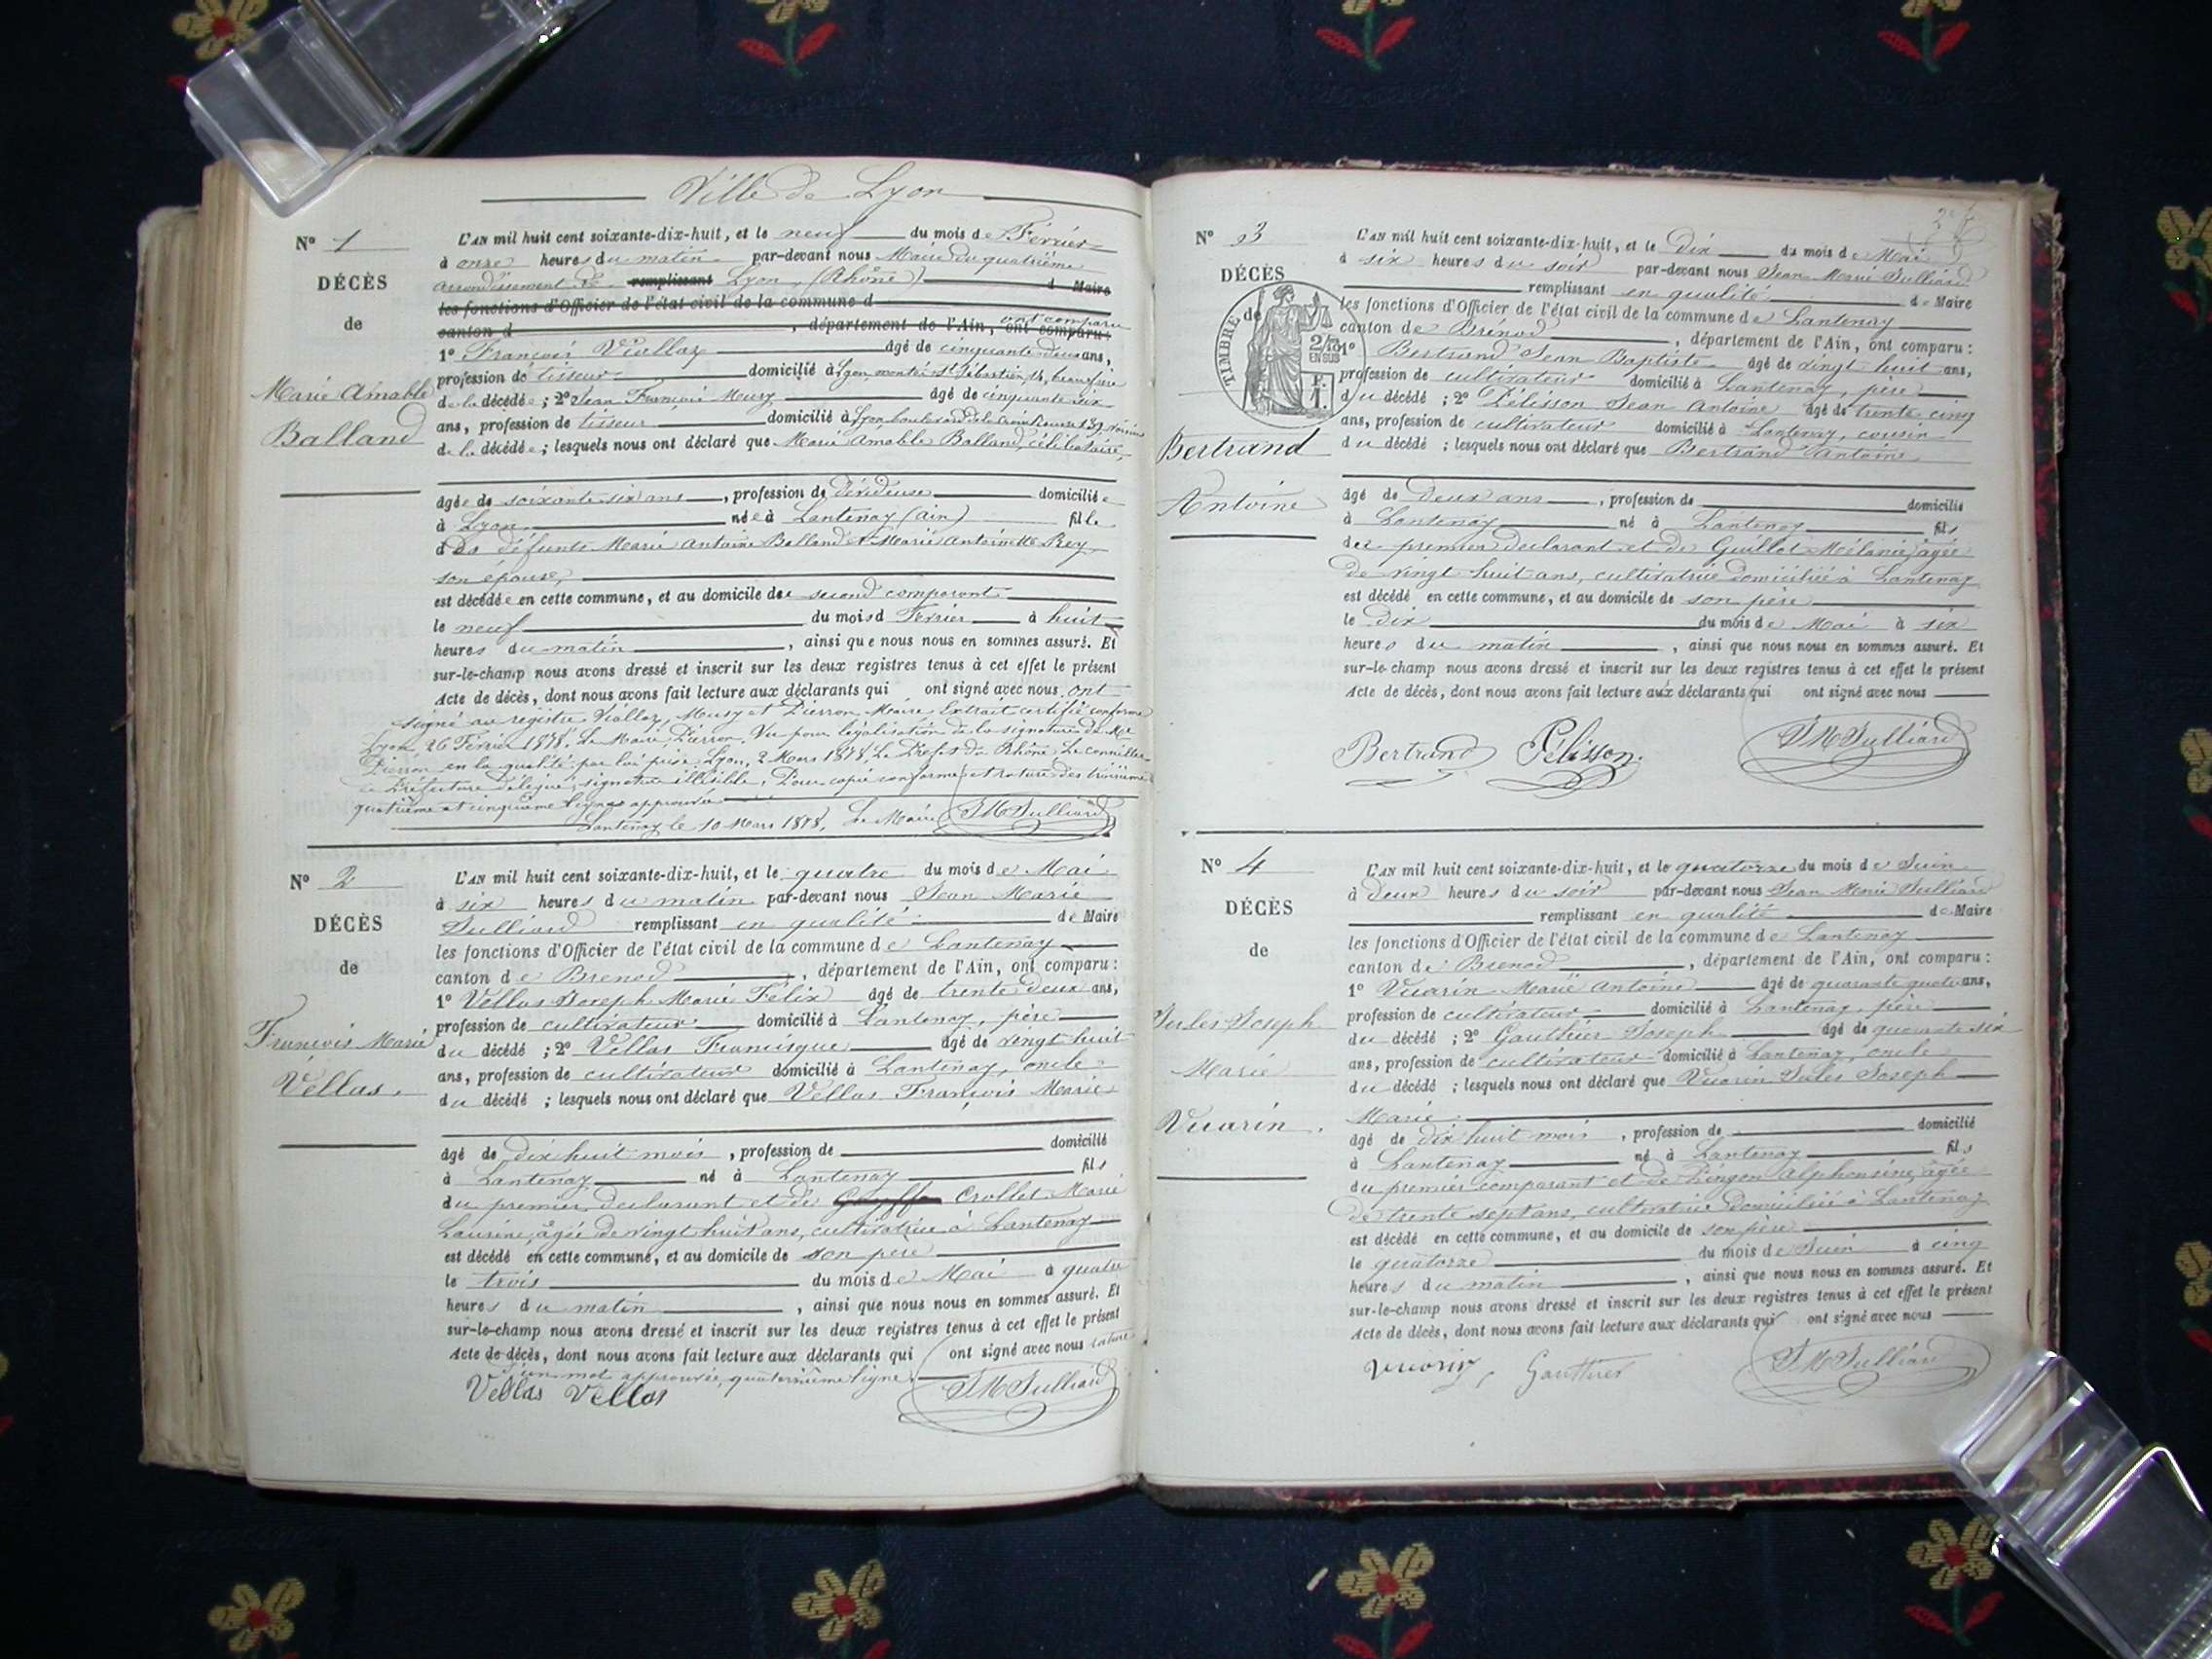 Ville de Lyon
N° 1
DÉCÈS
de
Marie Amable
Balland
L'AN mil huit cent soixante-dix-huit, et le neuf du mois de Février
à onze heures du matin par-devant nous Maire du quatrième
arrondissement de remplissant Lyon (Rhône) d Maire
les fonctions d'Officier de l'état civil de la commune d
canton d , département de l'Ain, ont comparu : ont comparu
1° François Viallaz âgé de cinquante deux ans,
profession de tisseur domicilié à Lyon, montée St Sébastien, 14, beau frère
de la décédée ; 2° Jean François Musy âgé de cinquante six
ans, profession de tisseur domicilié à Lyon boulevard de la Croix Rousse 139, voisin
de la décédée ; lesquels nous ont déclaré que Marie Amable Balland, célibataire,
âgée de soixante six ans , profession de dévideuse domiciliée
à Lyon née à Lantenay (Ain) fille
d Ds défunts Marie Antoine Balland et Marie Antoinette Rey
son épouse,
est décédée en cette commune, et au domicile du second comparant
le neuf du mois d Février à huit
heures du matin , ainsi que nous nous en sommes assuré. Et
sur-le-champ nous avons dressé et inscrit sur les deux registres tenus à cet effet le présent
Acte de décès, dont nous avons fait lecture aux déclarants qui ont signé avec nous ont
signé au registre Viallaz, Musy et Pierron Maire. Extrait certifié conforme
Lyon, 26 Février 1878. Le Maire, Pierron. Vu pour légalisation de la signature de Mr
Pierron en la qualité par lui prise Lyon, 2 Mars 1878, Le Préfet du Rhône Le conseiller
de Préfecture délégué, signature illisible. Pour copie conforme et rature des troisième
quatrième et cinquième lignes approuvée
Lantenay le 10 Mars 1878. Le Maire JM Julliard
N° 2
DÉCÈS
de
François Marie
Vellas.
L'AN mil huit cent soixante-dix-huit, et le quatre du mois de Mai
à six heures du matin par-devant nous Jean Marie
Julliard remplissant en qualité de Maire
les fonctions d'Officier de l'état civil de la commune de Lantenay
canton de Brenod , département de l'Ain, ont comparu :
1° Vellas Joseph Marie Félix âgé de trente deux ans,
profession de cultivateur domicilié à Lantenay, père
du décédé ; 2° Vellas Francisque âgé de vingt huit
ans, profession de cultivateur domicilié à Lantenay, oncle
du décédé ; lesquels nous ont déclaré que Vellas François Marie
âgé de dix huit mois , profession de domicilié
à Lantenay né à Lantenay fils
du premier declarant et de Crollet Marie
Laurine, âgée de vingt huit ans, cultivatrice à Lantenay
est décédé en cette commune, et au domicile de son père
le trois du mois de Mai à quatre
heures du matin , ainsi que nous nous en sommes assuré. Et
sur-le-champ nous avons dressé et inscrit sur les deux registres tenus à cet effet le présent
Acte de décès, dont nous avons fait lecture aux déclarants qui ont signé avec nous rature
d'un mot approuvée, quatorzième ligne.
Vellas Vellas JM Julliard
N° 3
DÉCÈS
de
TIMBRE
2/10
EN SUS
F.
1.
Bertrand
Antoine
L'AN mil huit cent soixante-dix-huit, et le dix du mois de Mai
à six heures du soir par-devant nous Jean Marie Julliard
remplissant en qualité de Maire
les fonctions d'Officier de l'état civil de la commune de Lantenay
canton de Brenod , département de l'Ain, ont comparu :
1° Bertrand Jean Baptiste âgé de vingt huit ans,
profession de cultivateur domicilié à Lantenay, père
du décédé ; 2° Pélisson Jean Antoine âgé de trente cinq
ans, profession de cultivateur domicilié à Lantenay, cousin
du décédé ; lesquels nous ont déclaré que Bertrand Antoine
âgé de deux ans , profession de domicilié
à Lantenay né à Lantenay fils
du premier declarant et de Guillot Mélanie, âgée
de vingt huit ans, cultivatrice domiciliée à Lantenay
est décédé en cette commune, et au domicile de son père
le dix du mois de Mai à six
heures du matin , ainsi que nous nous en sommes assuré. Et
sur-le-champ nous avons dressé et inscrit sur les deux registres tenus à cet effet le présent
Acte de décès, dont nous avons fait lecture aux déclarants qui ont signé avec nous
Bertrand Pélisson. JM Julliard
N° 4
DÉCÈS
de
Jules Joseph
Marie
Vuarin.
L'AN mil huit cent soixante-dix-huit, et le quatorze du mois de Juin
à deux heures du soir par-devant nous Jean Marie Julliard
remplissant en qualité de Maire
les fonctions d'Officier de l'état civil de la commune de Lantenay
canton de Brenod , département de l'Ain, ont comparu :
1° Vuarin Marie Antoine âgé de quarante quatre ans,
profession de cultivateur domicilié à Lantenay, père
du décédé ; 2° Gauthier Joseph âgé de quarante six
ans, profession de cultivateur domicilié à Lantenay, oncle
du décédé ; lesquels nous ont déclaré que Vuarin Jules Joseph
Marie
âgé de dix huit mois , profession de domicilié
à Lantenay né à Lantenay fils
du premier comparant et de Pingon Alphonsine, âgée
de trente sept ans, cultivatrice domiciliée à Lantenay
est décédé en cette commune, et au domicile de son père
le quatorze du mois de Juin à cinq
heures du matin , ainsi que nous nous en sommes assuré. Et
sur-le-champ nous avons dressé et inscrit sur les deux registres tenus à cet effet le présent
Acte de décès, dont nous avons fait lecture aux déclarants qui ont signé avec nous
Vuarin, Gauthier JM Julliard